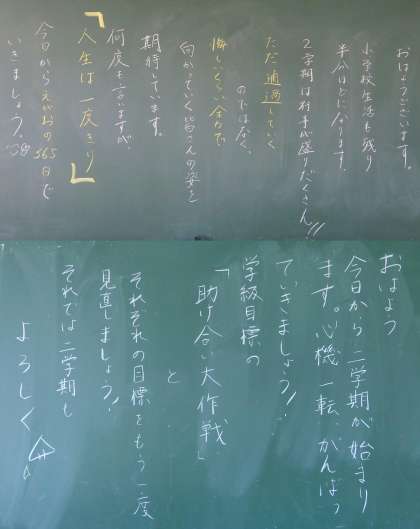 おはようございます。
小学校生活も残り
半分ほどになります。
2学期は行事も盛りだくさん!!
ただ通過していく
のではなく、
悔しいくらい全力で
向かっていく皆さんの姿を
期待しています。
何度も言いますが、
「人生は一度きり」
今日からえがおの365日で
いきましょう。
おはよう
今日から二学期が始まり
ます。心機一転、がんばっ
ていきましょう!
学級目標の
「助け合い大作戦」
と
それぞれの目標をもう一度
見直しましょう!
それでは二学期も
よろしく